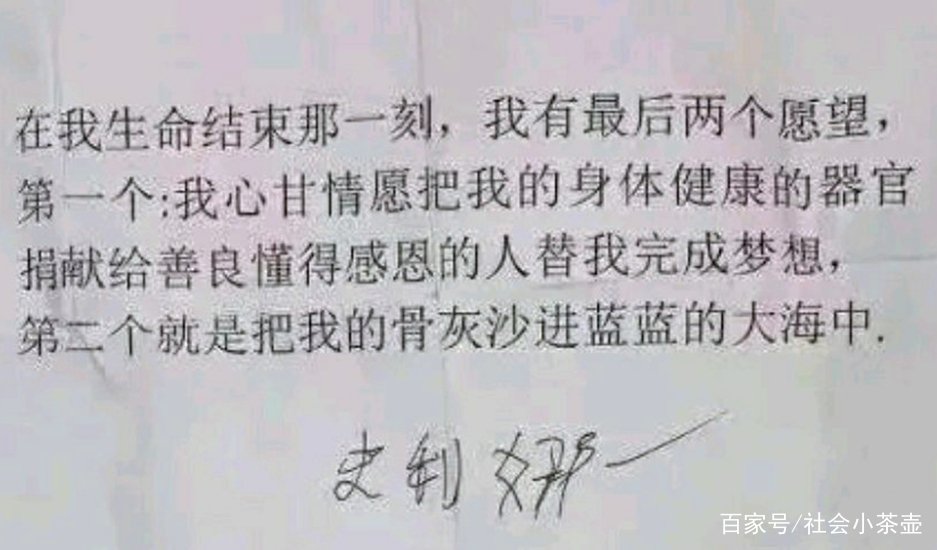 在我生命结束那一刻，我有最后两个愿望，
第一个:我心甘情愿把我的身体健康的器官
捐献给善良懂得感恩的人替我完成梦想，
第二个就是把我的骨灰沙进蓝蓝的大海中.
史利娜
百家号/社会小茶壶